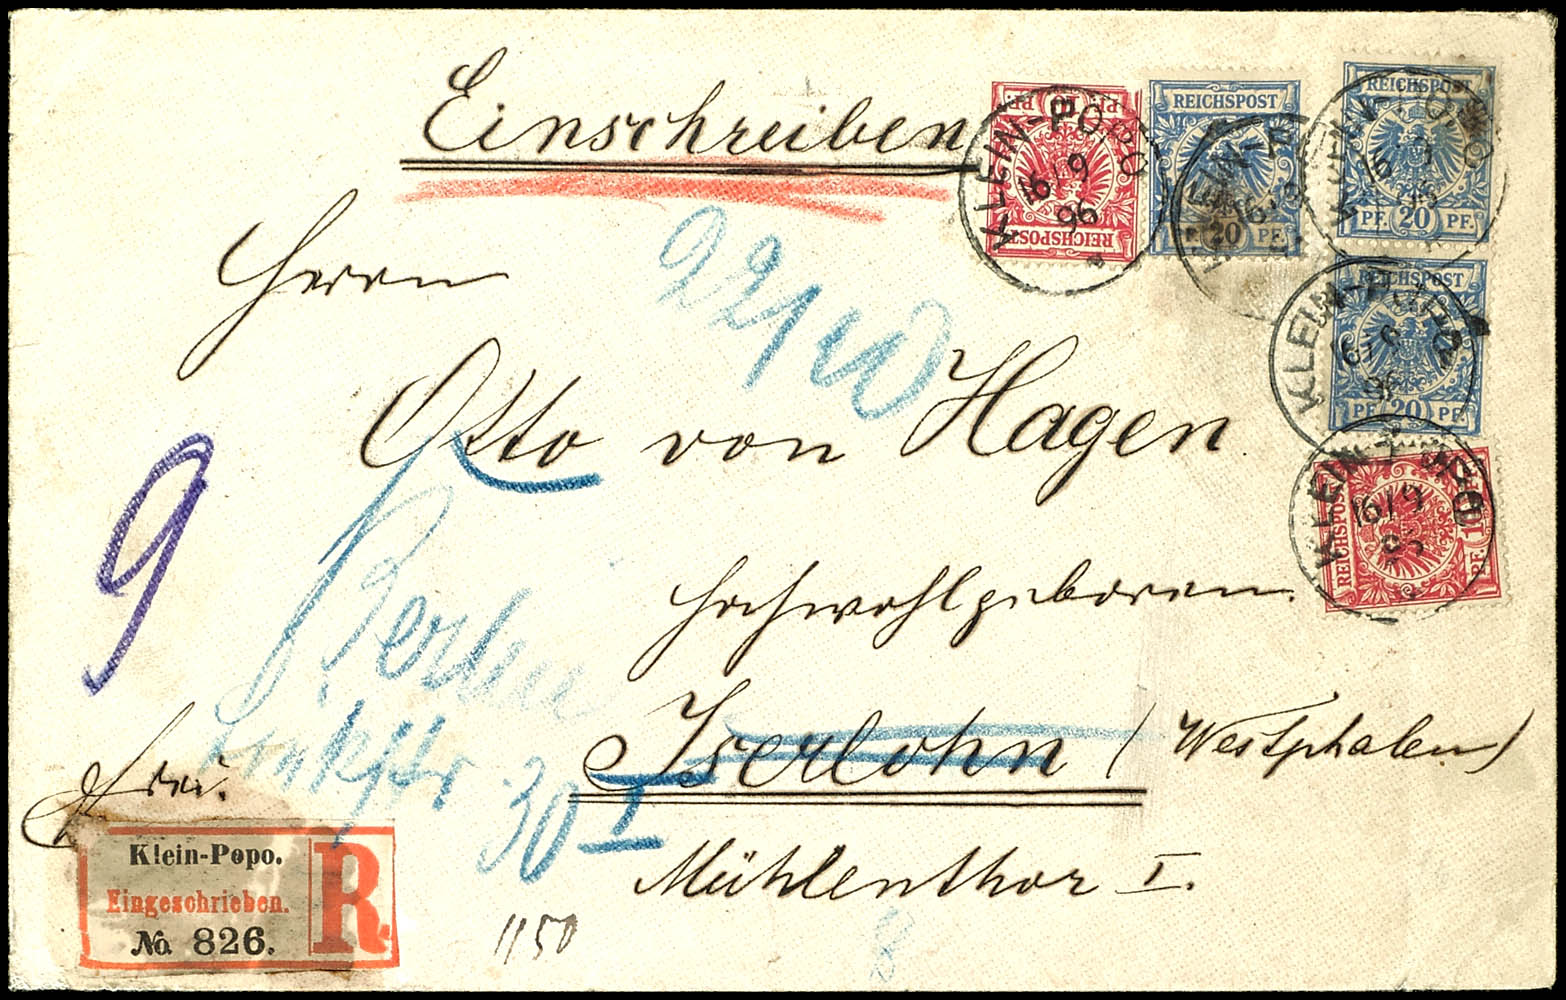 Einschreiben
Herrn
Otto von Hagen
Hochwohlgeboren.
Iserlohn (Westphalen)
Mühlenthor I.
Frei.
9
22/10
Berlin
30 I
1150
8
Klein-Popo.
Eingeschrieben.
No. 826.
R
PF. 10 PF.
REICHSPOST
KLEIN-POPO
16/9
96
REICHSPOST
PF. 20 PF.
KLEIN-P
16/9
REICHSPOST
PF. 20 PF.
KLEIN-POPO
16/9
96
REICHSPOST
PF. 20 PF.
KLEIN-POPO
16/9
96
REICHSPOST
PF. 1
KLEIN-POPO
16/9
96